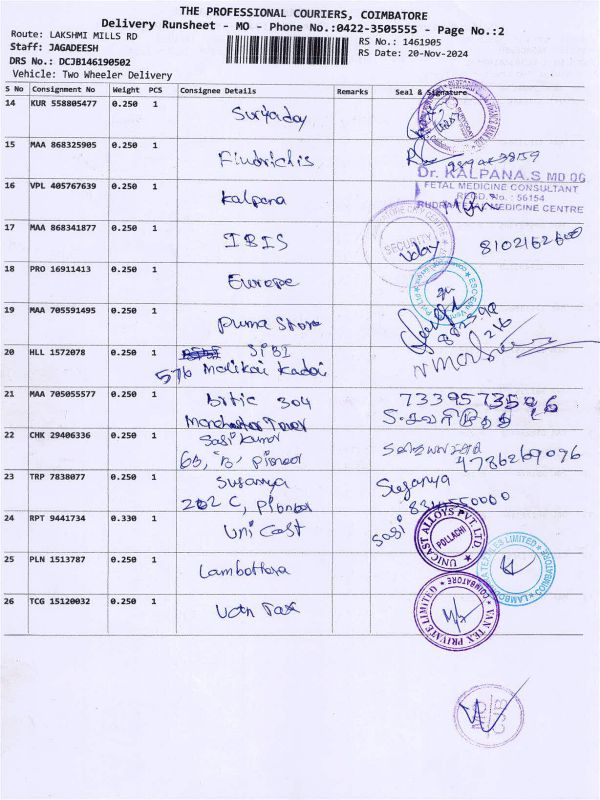 THE PROFESSIONAL COURIERS, COIMBATORE
Delivery Runsheet - MO - Phone No.:0422-3505555 - Page No.:2
Route: LAKSHMI MILLS RD
RS No.: 1461905
Staff: JAGADEESH
RS Date: 20-Nov-2024
DRS No.: DCJB146190502
Vehicle: Two Wheeler Delivery
S No Consignment No Weight PCS Consignee Details Remarks Seal & Signature
14 KUR 558805477 0.250 1 Suryaday
15 MAA 868325905 0.250 1 Findrichis
16 VPL 405767639 0.250 1 Kalpana
Dr. KALPANA.S MD OG
FETAL MEDICINE CONSULTANT
REGD. No.: 56154
MEDICINE CENTRE
17 MAA 868341877 0.250 1 IBIS
SECURITY
Uday 8102162600
18 PRO 16911413 0.250 1 Europe
19 MAA 705591495 0.250 1 Puma Store
20 HLL 1572078 0.250 1 SIBI
576 Malikai Kadai
21 MAA 705055577 0.250 1 Artic 304
Manchester Tower
22 CHK 29406336 0.250 1 Sasi Kumar
63, "B", Pioneer
4786269096
23 TRP 7838077 0.250 1 Suganya
202 C, Pioneer
Suganya
24 RPT 9441734 0.330 1 Uni Cast
Sasi
UNICAST ALLOYS PVT. LTD.
POLLACHI
25 PLN 1513787 0.250 1 Lambottara
26 TCG 15120032 0.250 1 Van Tax
VAN TEX PRIVATE LIMITED
COIMBATORE